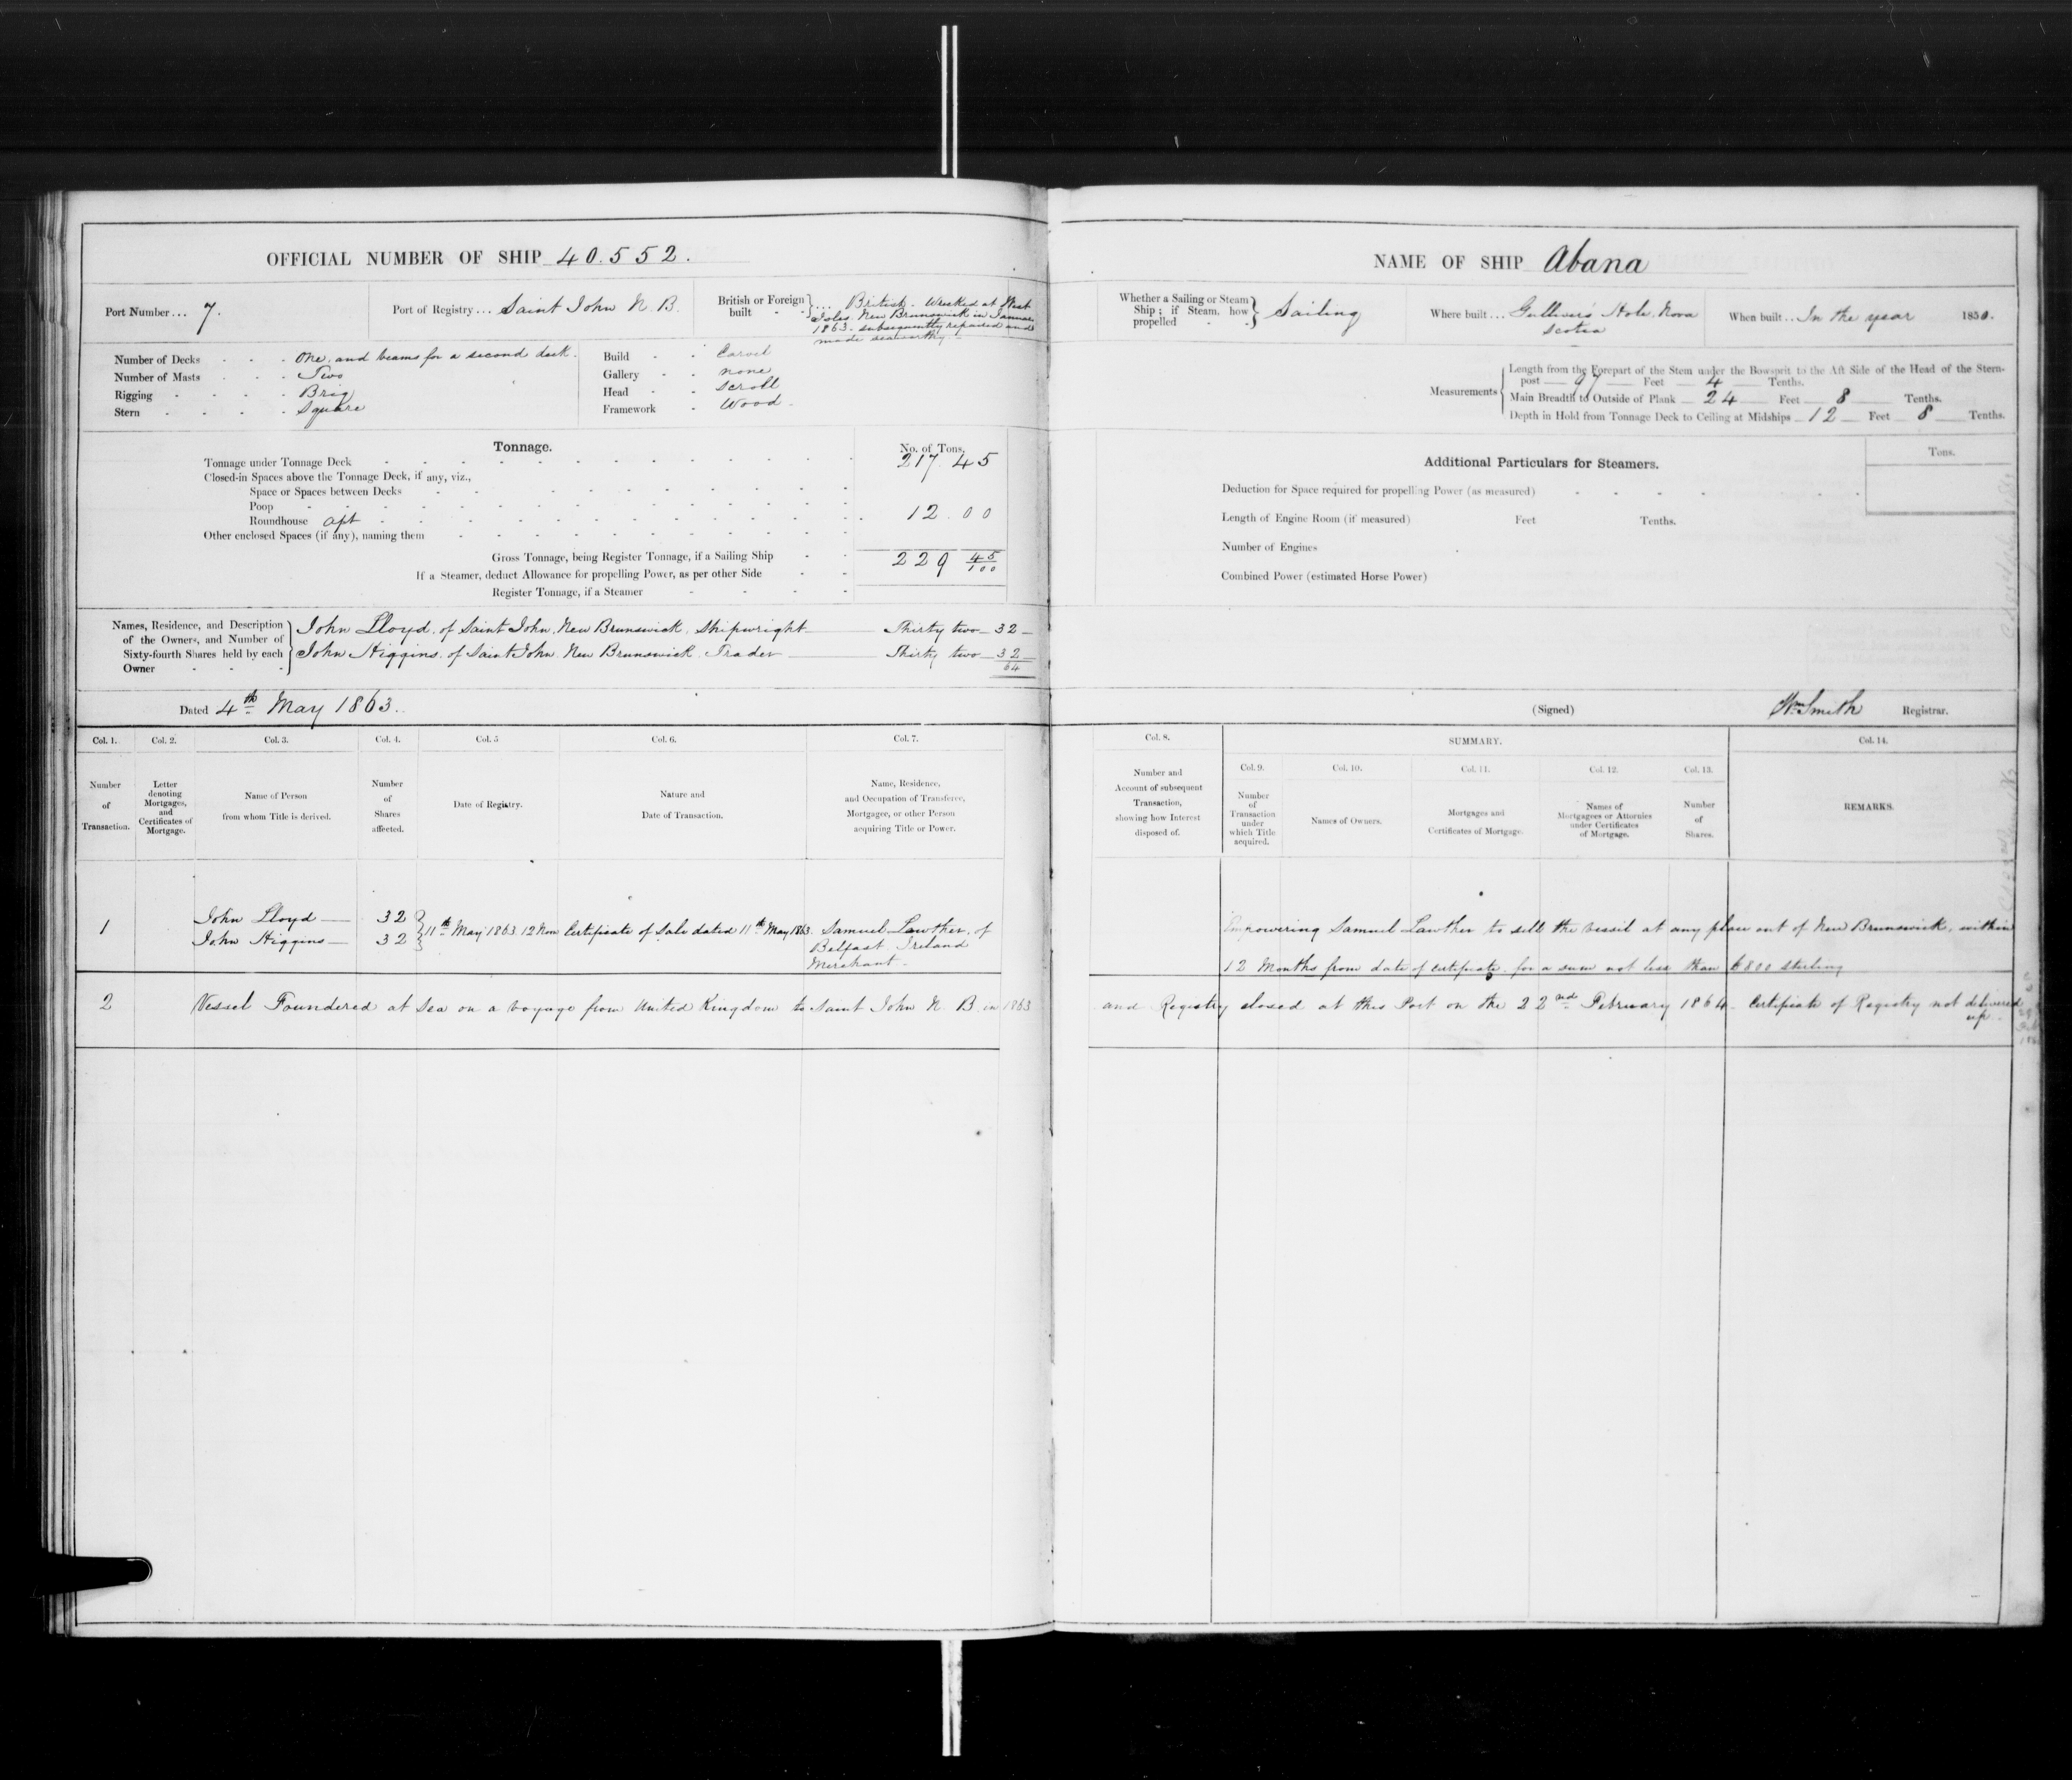 OFFICIAL NUMBER OF SHIP 40.552.
Port Number... 7.
Port of Registry... Saint John N. B.
British or Foreign built - - } ... British - Wrecked at West
Isles New Brunswick in January
1863. subsequently repaired and
made seaworthy -
Number of Decks - - - One, and beams for a second deck.
Number of Masts - - - Two
Rigging - - - - Brig
Stern - - - - Square
Build - - Carvel
Gallery - - none
Head - - Scroll
Framework - Wood -
Tonnage.
No. of Tons.
Tonnage under Tonnage Deck 217.45
Closed-in Spaces above the Tonnage Deck, if any, viz.,
Space or Spaces between Decks
Poop
Roundhouse apt 12.00
Other enclosed Spaces (if any), naming them
Gross Tonnage, being Register Tonnage, if a Sailing Ship 229 45/100
If a Steamer, deduct Allowance for propelling Power, as per other Side
Register Tonnage, if a Steamer
Names, Residence, and Description
of the Owners, and Number of
Sixty-fourth Shares held by each
Owner
John Lloyd, of Saint John, New Brunswick, Shipwright Thirty two 32
John Higgins, of Saint John, New Brunswick, Trader Thirty two 32
64
Dated 4th May 1863.
Col. 1. Col. 2. Col. 3. Col. 4. Col. 5 Col. 6. Col. 7.
Number
of
Transaction.
Letter
denoting
Mortgages,
and
Certificates of
Mortgage.
Name of Person
from whom Title is derived.
Number
of
Shares
affected.
Date of Registry.
Nature and
Date of Transaction.
Name, Residence,
and Occupation of Transferee,
Mortgagee, or other Person
acquiring Title or Power.
1 John Lloyd 32
John Higgins 32
11th May 1863. 12 Noon Certificate of Sale dated 11th May 1863. Samuel Lawther, of
Belfast Ireland
Merchant -
2 Vessel Foundered at Sea on a voyage from United Kingdom to Saint John N. B. in 1863
NAME OF SHIP Abana
Whether a Sailing or Steam
Ship; if Steam, how
propelled - - } Sailing
Where built... Gulliver's Hole, Nova
Scotia
When built.. In the year 1850.
Measurements
Length from the Forepart of the Stem under the Bowsprit to the Aft Side of the Head of the Stern-
post 97 Feet 4 Tenths.
Main Breadth to Outside of Plank 24 Feet 8 Tenths.
Depth in Hold from Tonnage Deck to Ceiling at Midships 12 Feet 8 Tenths.
Additional Particulars for Steamers.
Tons.
Deduction for Space required for propelling Power (as measured)
Length of Engine Room (if measured) Feet Tenths.
Number of Engines
Combined Power (estimated Horse Power)
(Signed) Wm Smith Registrar.
Col. 8. SUMMARY. Col. 14.
Number and
Account of subsequent
Transaction,
showing how Interest
disposed of.
Col. 9. Col. 10. Col. 11. Col. 12. Col. 13.
Number
of
Transaction
under
which Title
acquired.
Names of Owners.
Mortgages and
Certificates of Mortgage.
Names of
Mortgagees or Attornies
under Certificates
of Mortgage.
Number
of
Shares.
REMARKS.
Empowering Samuel Lawther to sell the vessel at any place out of New Brunswick, within
12 Months from date of certificate for a sum not less than £800 sterling
and Registry closed at this Port on the 22nd February 1864. Certificate of Registry not delivered
up -